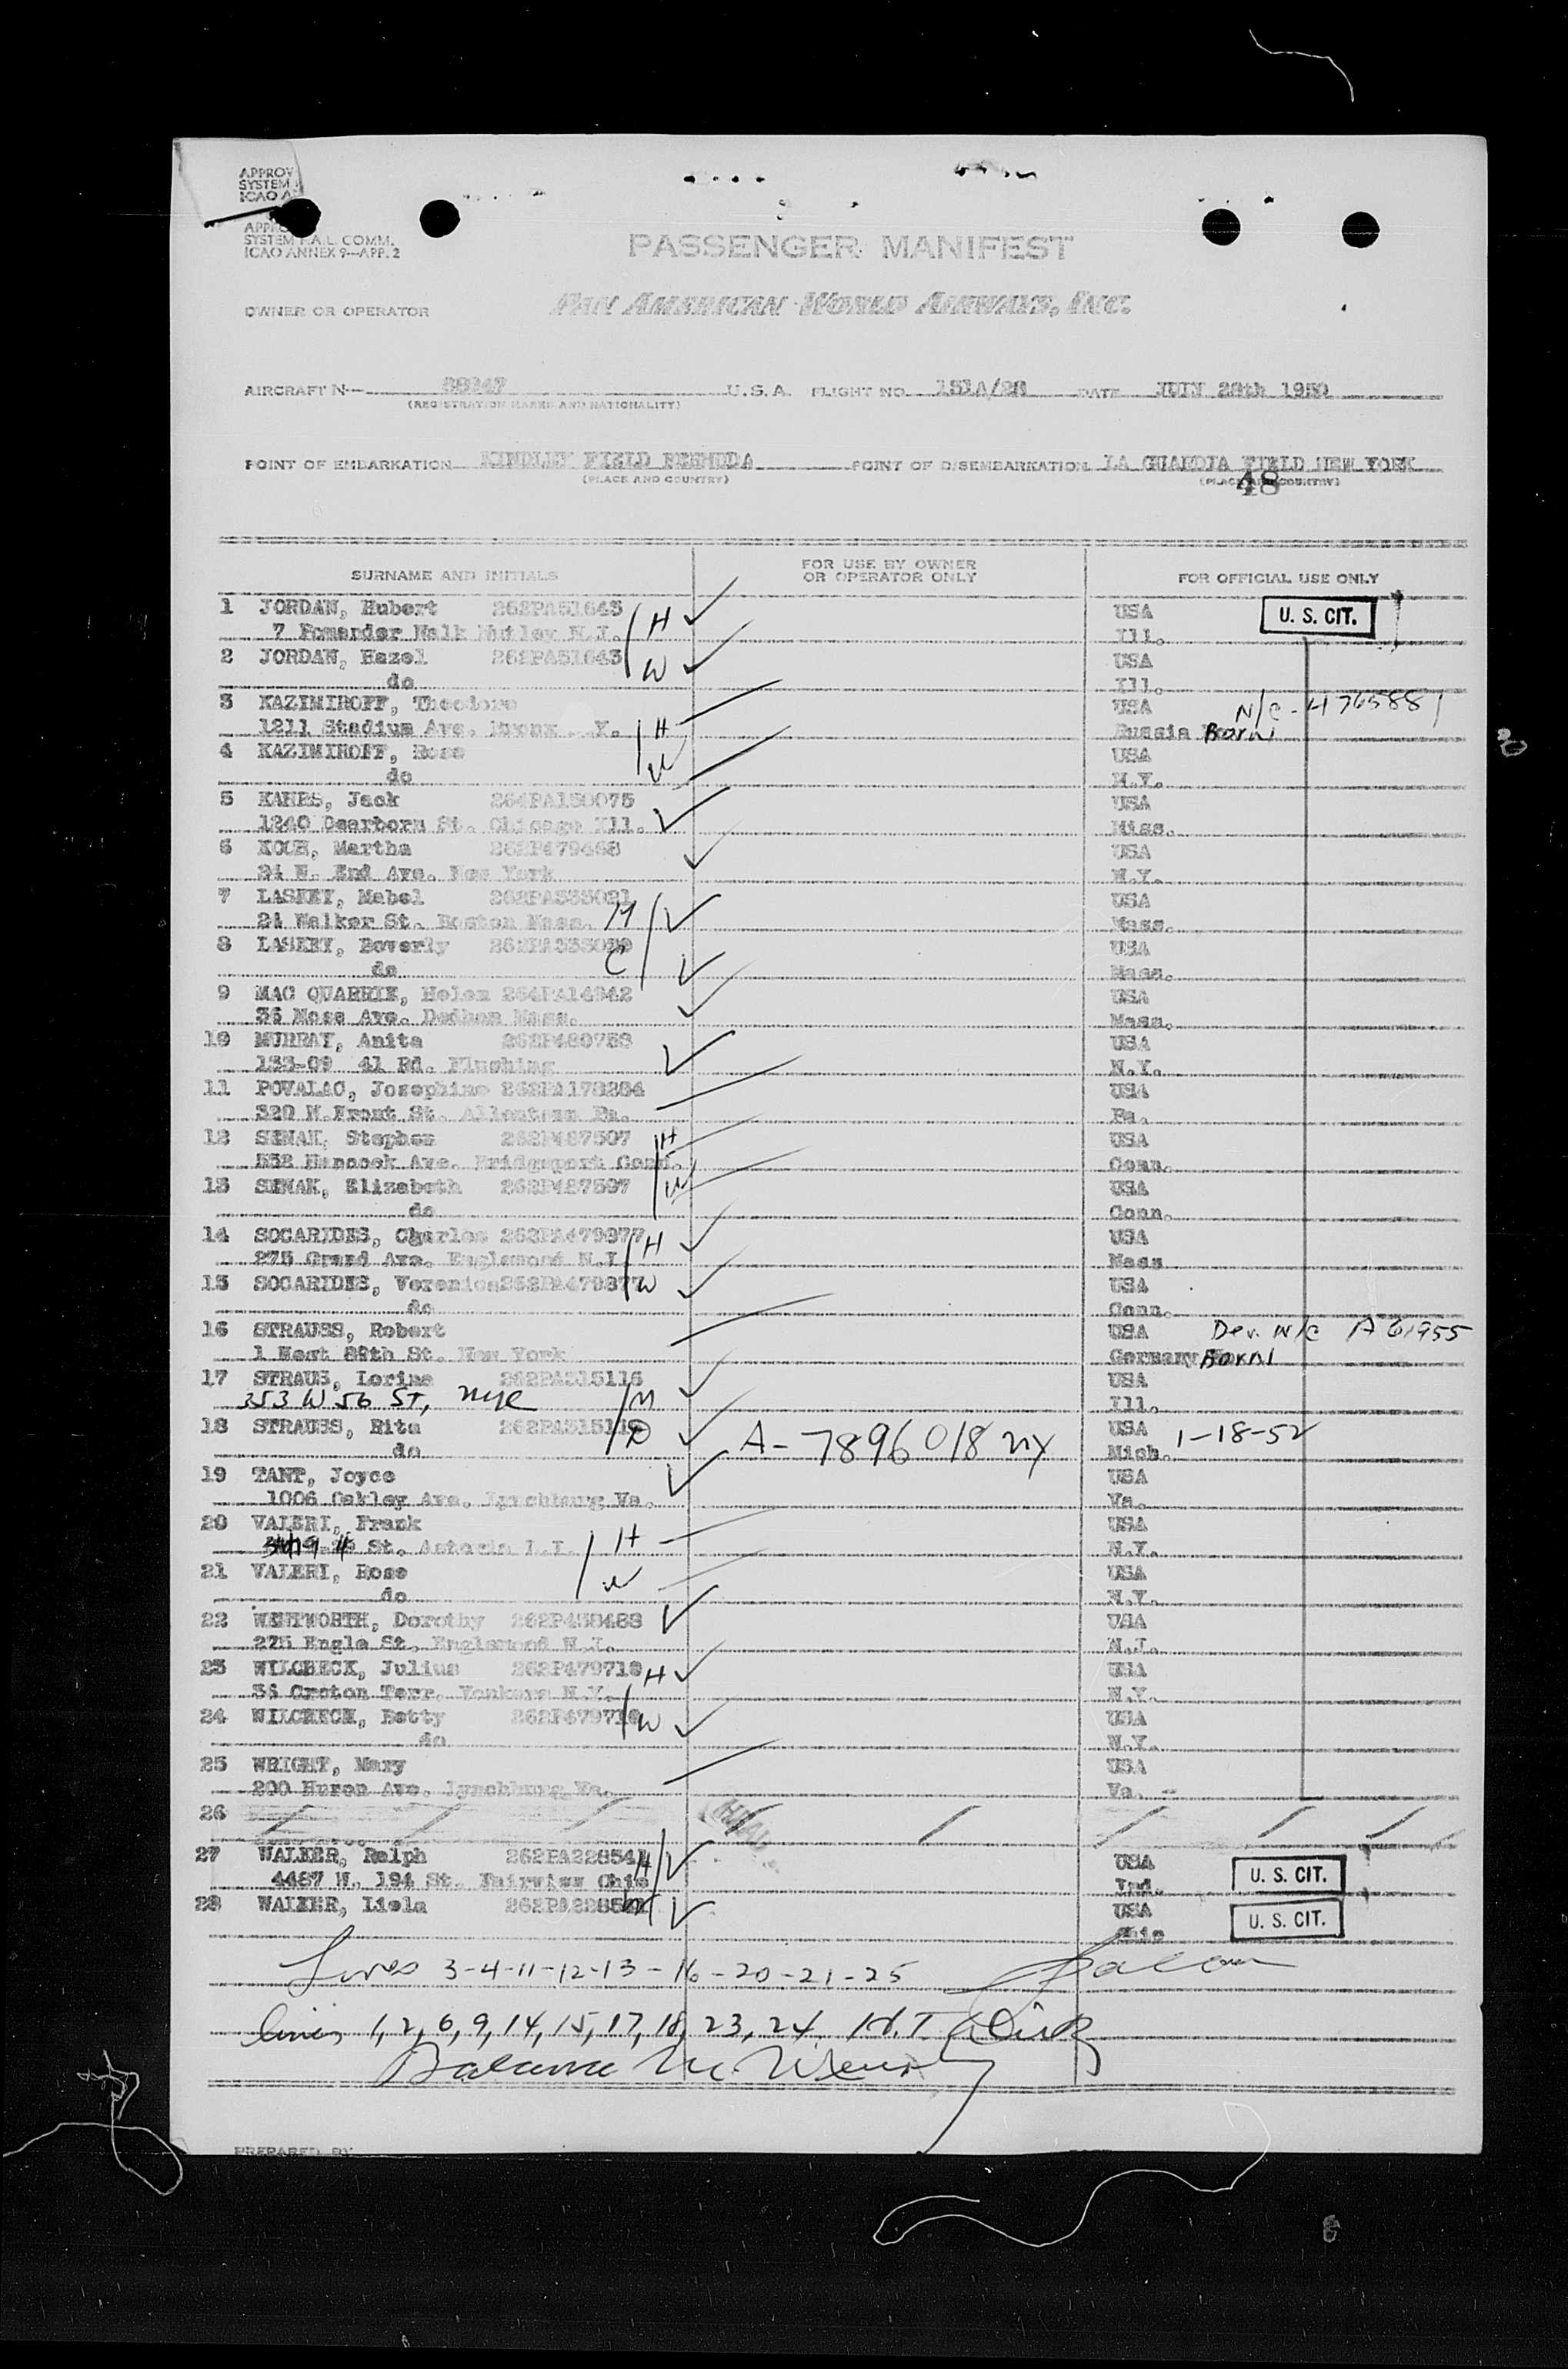 APPROV
SYSTEM
ICAO A
SYSTEM F.A.L. COMM.
ICAO ANNEX 9—APP. 2
PASSENGER MANIFEST
OWNER OR OPERATOR PAN AMERICAN WORLD AIRWAYS, INC.
AIRCRAFT N— U.S.A. FLIGHT NO. 131A/28 DATE 28th 1950
(REGISTRATION MARKS AND NATIONALITY)
POINT OF EMBARKATION KINDLEY FIELD BERMUDA POINT OF DISEMBARKATION LA GUARDIA FIELD NEW YORK
(PLACE AND COUNTRY) (PLACE AND COUNTRY)
48
SURNAME AND INITIALS FOR USE BY OWNER OR OPERATOR ONLY FOR OFFICIAL USE ONLY
1 JORDAN, Hubert 262PA51643 USA U. S. CIT.
7 Pomander Walk Nutley N.J. H Ill.
2 JORDAN, Hazel 262PA51643 USA
do W Ill.
3 KAZIMIROFF, Theodore USA N/C-4765881
1211 Stadium Ave. Bronx Y. H Russia Born
4 KAZIMIROFF, Rose USA
do W N.Y.
5 Jack 264PA150075 USA
1240 Dearborn St. Chicago Ill. Miss.
6 KOCH, Martha 262P479468 USA
24 N. End Ave. New York N.Y.
7 LASKEY, Mabel USA
24 Walker St. Boston Mass. M Mass.
8 LASKEY, Beverly USA
do C Mass.
9 MAC QUARRIE, Helen 264PA14942 USA
36 Ave. Dedham Mass. Mass.
10 MURRAY, Anita USA
133-09 41 Rd. Flushing N.Y.
11 POVALAC, Josephine 262PA178284 USA
320 N.Front St. Allentown Pa. Pa.
12 SEMAK, Stephen 262P487507 H USA
Hancock Ave. Bridgeport Conn. Conn.
13 SEMAK, Elizabeth W USA
do Conn.
14 SOCARIDES, Charles 262PA479377 H USA
275 Grand Ave. Englewood N.J. Mass
15 SOCARIDES, Veronica 262PA479377 W USA
do Conn.
16 STRAUSS, Robert USA Der. N/C A 61955
1 West 89th St. New York Germany Born
17 STRAUS, Lorine 262PA315115 USA
353 W 56 ST, NYC M Ill.
18 STRAUSS, Rita D A-7896018 NY USA 1-18-52
do Mich.
19 TANT, Joyce USA
1006 Oakley Ave. Lynchburg Va. Va.
20 VALERI, Frank USA
St. Astoria L.I. H N.Y.
21 VALERI, Rose W USA
do N.Y.
22 WENTWORTH, Dorothy USA
275 Engle St. Englewood N.J. N.J.
23 WILCHECK, Julius 262P479718 H USA
Croton Terr. Yonkers N.Y. N.Y.
24 WILCHECK, Betty W USA
do N.Y.
25 WRIGHT, Mary USA
200 Huron Ave. Lynchburg Va. Va.
26
27 WALKER, Ralph H USA U. S. CIT.
4487 W. 194 St. Fairview Ohio Ind.
28 WALKER, Liela W USA U. S. CIT.
Ohio
Lines 3-4-11-12-13-16-20-21-25
lines 1, 2, 6, 9, 14, 15, 17, 18, 23, 24
Balance
PREPARED BY